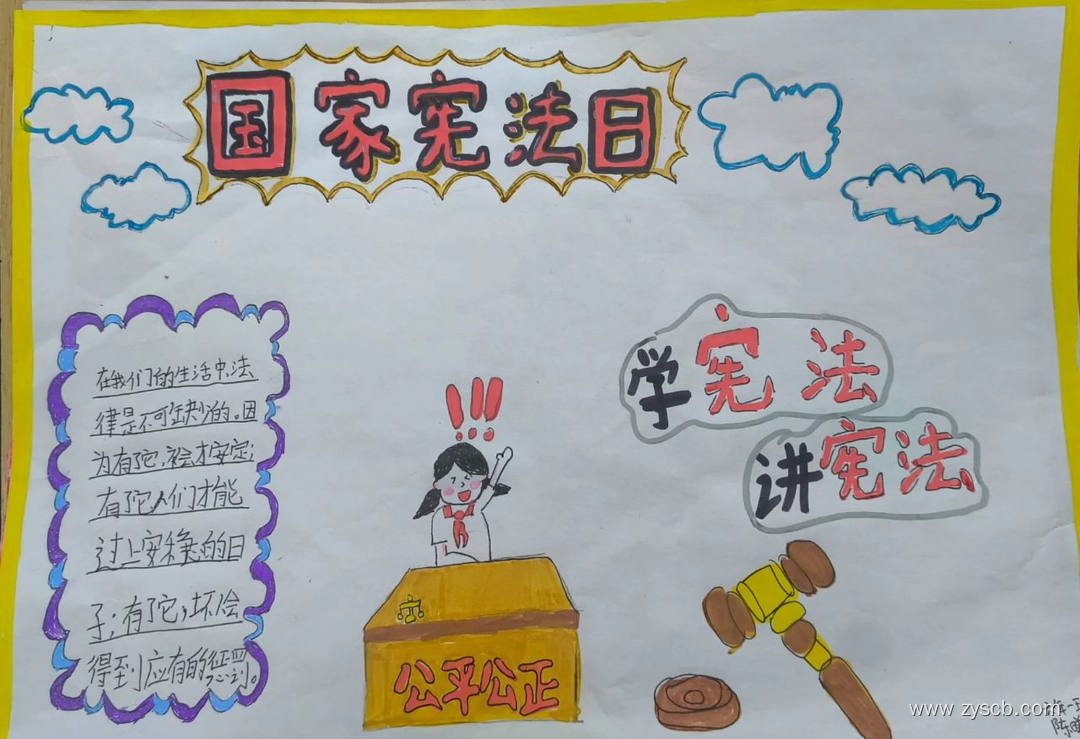 国家宪法日
学宪法
讲宪法
在我们的生活中,法
律是不可缺少的。因
为有了它,社会才安定;
有了它人们才能
过上安稳的日
子;有了它,坏人会
得到应有的惩罚。
!!!
公平公正
www.zyscb.com